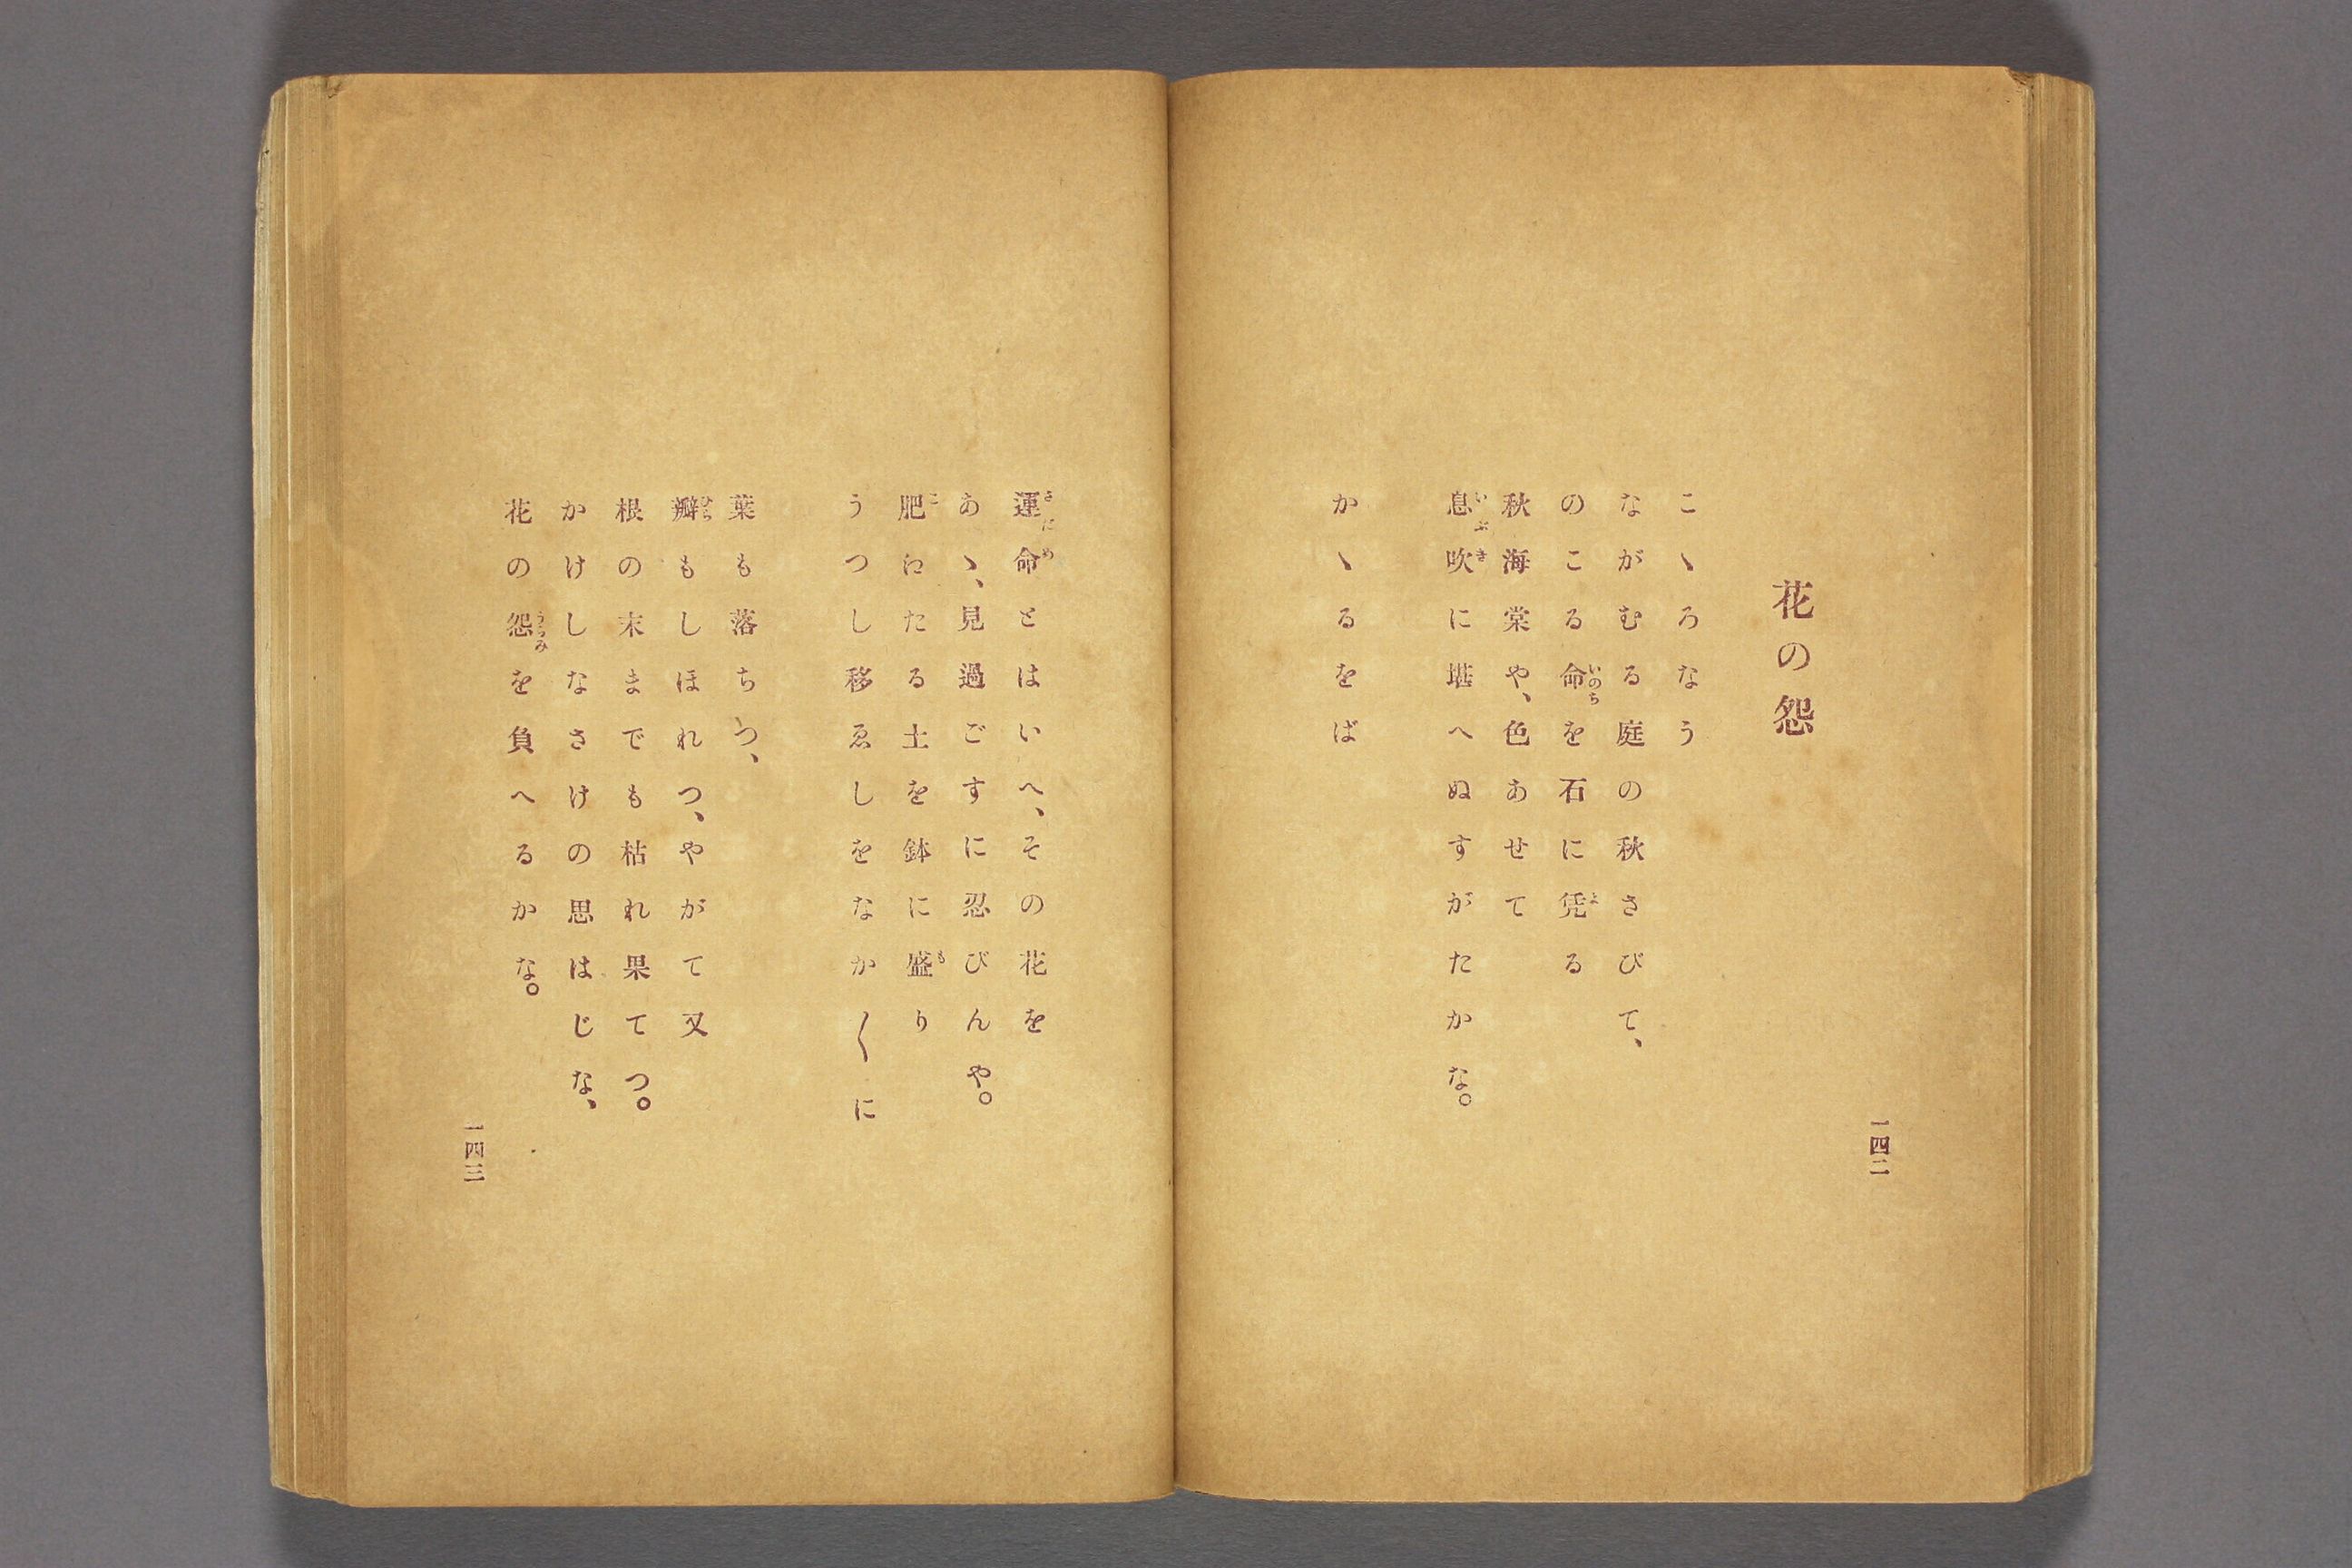 花の怨
こゝろなう
ながむる庭の秋さびて、
のこる命を石に凭る
秋海棠や、色あせて
息吹に堪へぬすがたかな。
かゝるをば
一四二
運命とはいへ、その花を
あゝ、見過ごすに忍びんや。
肥えたる土を鉢に盛り
うつし移ゑしをなか〱に
葉も落ちつ、
瓣もしほれつ、やがて又
根の末までも枯れ果てつ。
かけしなさけの思はじな、
花の怨を負へるかな。
一四三